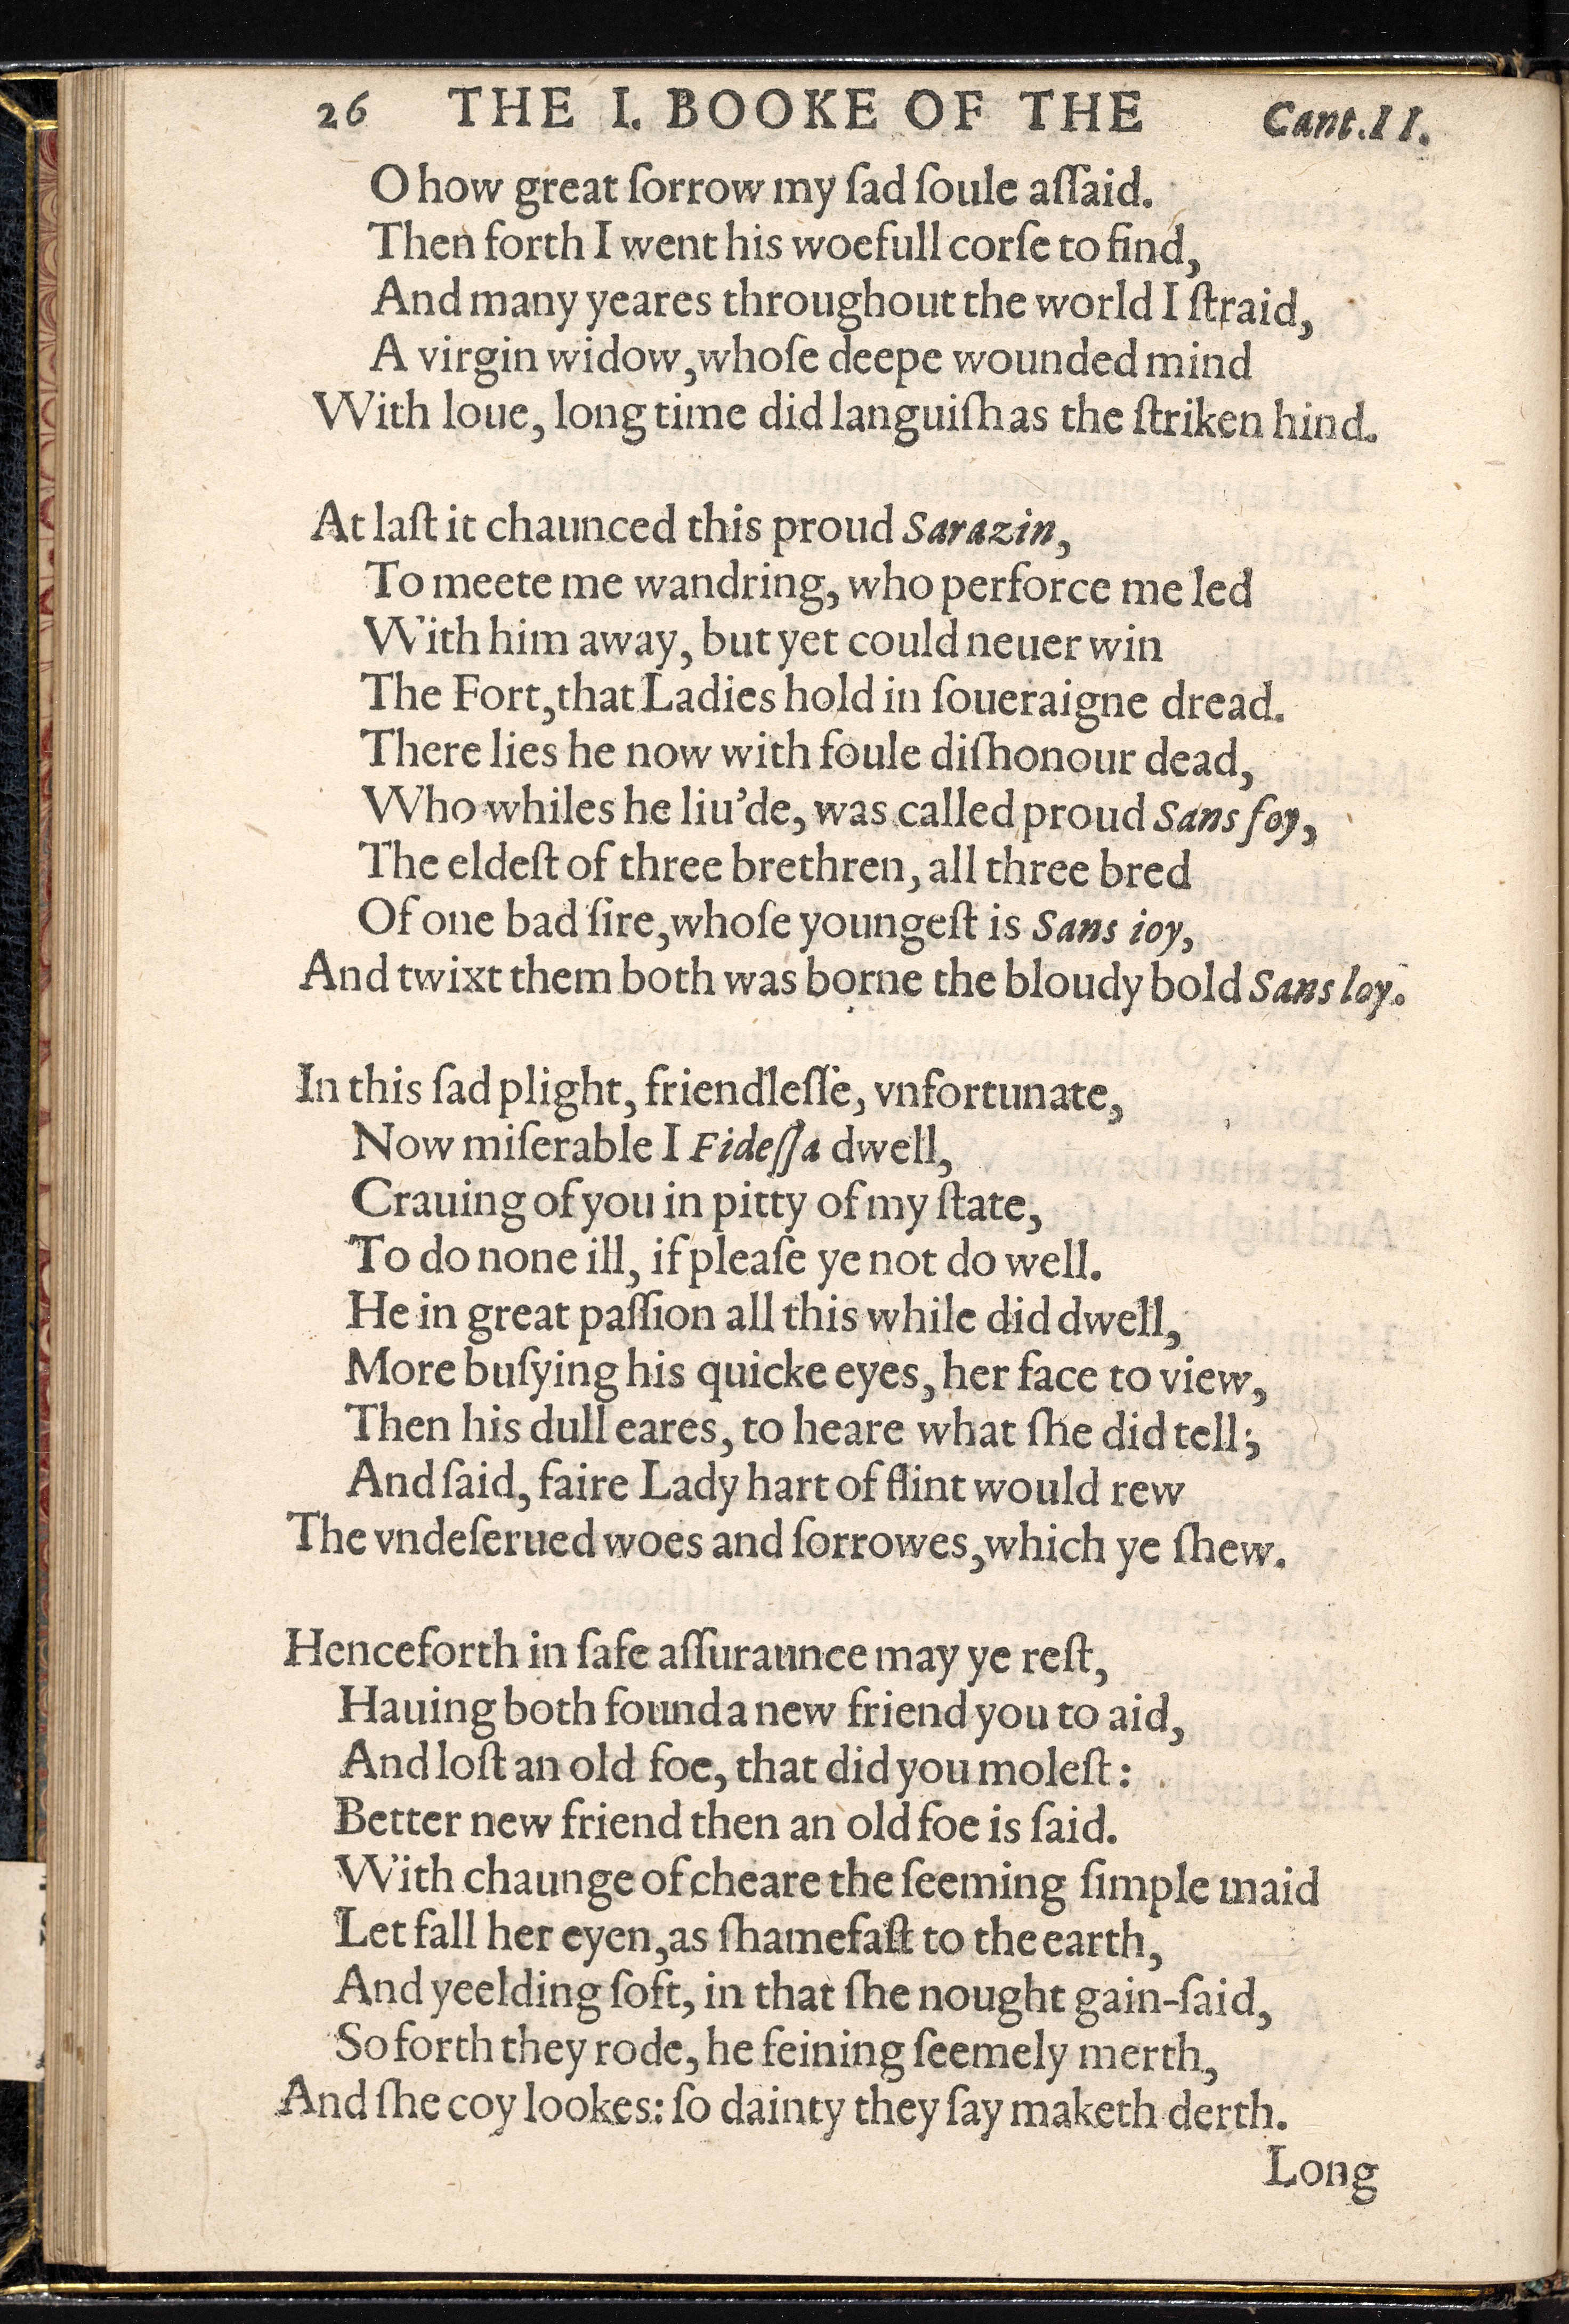 26 THE I. BOOKE OF THE Cant.II.
O how great ſorrow my ſad ſoule aſſaid.
Then forth I went his woefull corſe to find,
And many yeares throughout the world I ſtraid,
A virgin widow, whoſe deepe wounded mind
With loue, long time did languiſh as the ſtriken hind.
At laſt it chaunced this proud Sarazin,
To meete me wandring, who perforce me led
With him away, but yet could neuer win
The Fort, that Ladies hold in ſoueraigne dread.
There lies he now with foule diſhonour dead,
Who whiles he liu'de, was called proud Sans foy,
The eldeſt of three brethren, all three bred
Of one bad ſire, whoſe youngeſt is Sans ioy,
And twixt them both was borne the bloudy bold Sans loy.
In this ſad plight, friendleſſe, vnfortunate,
Now miſerable I Fideſſa dwell,
Crauing of you in pitty of my ſtate,
To do none ill, if pleaſe ye not do well.
He in great paſſion all this while did dwell,
More buſying his quicke eyes, her face to view,
Then his dull eares, to heare what ſhe did tell;
And ſaid, faire Lady hart of flint would rew
The vndeſerued woes and ſorrowes, which ye ſhew.
Henceforth in ſafe aſſuraunce may ye reſt,
Hauing both found a new friend you to aid,
And loſt an old foe, that did you moleſt:
Better new friend then an old foe is ſaid.
With chaunge of cheare the ſeeming ſimple maid
Let fall her eyen, as ſhamefaſt to the earth,
And yeelding ſoft, in that ſhe nought gain-ſaid,
So forth they rode, he feining ſeemely merth,
And ſhe coy lookes: ſo dainty they ſay maketh derth.
Long